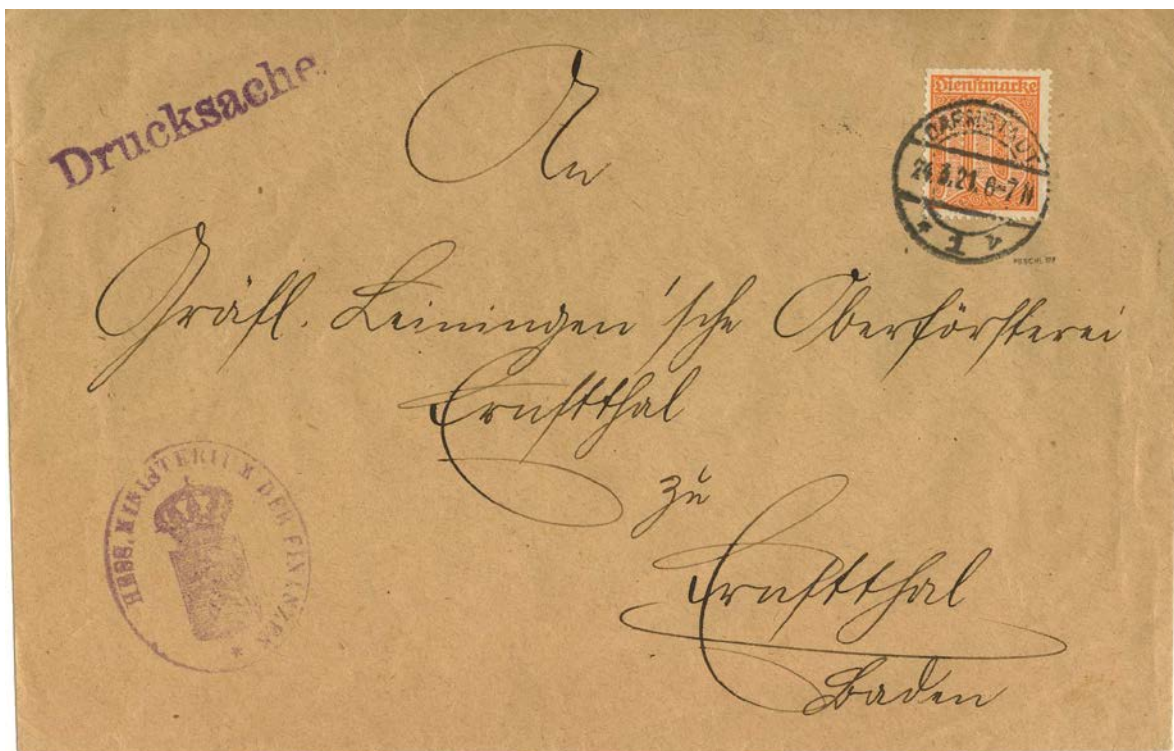 Drucksache
An
Dienstmarke
10
DARMSTADT
24.3.21.6-7N
* 1 *
Gräfl. Leiningen'sche Oberförsterei
Ernstthal
zu
Ernstthal
Baden
HESS. MINISTERIUM DER FINANZEN